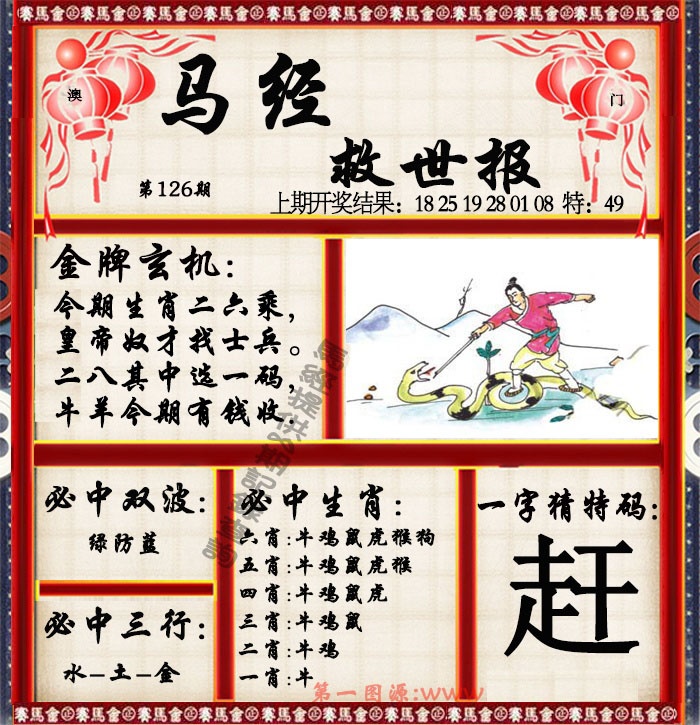 賽馬會金賽馬會金賽馬會金賽馬會金賽馬會金賽馬會
澳
门
马经
救世报
第126期
上期开奖结果：18 25 19 28 01 08 特：49
金牌玄机：
今期生肖二六乘，
皇帝奴才找士兵。
二八其中选一码，
牛羊今期有钱收.
必中双波：
绿防蓝
必中三行：
水–土–金
必中生肖：
六肖:牛鸡鼠虎猴狗
五肖:牛鸡鼠虎猴
四肖:牛鸡鼠虎
三肖:牛鸡鼠
二肖:牛鸡
一肖:牛
一字猜特码:
赶
第一图源:www